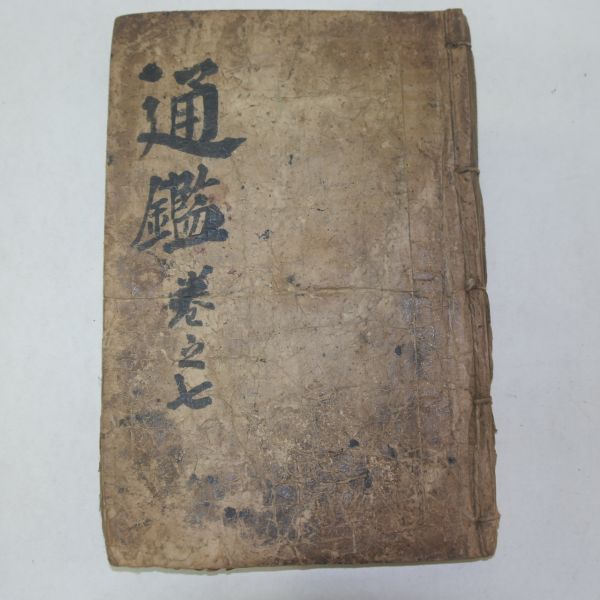 通鑑卷之七